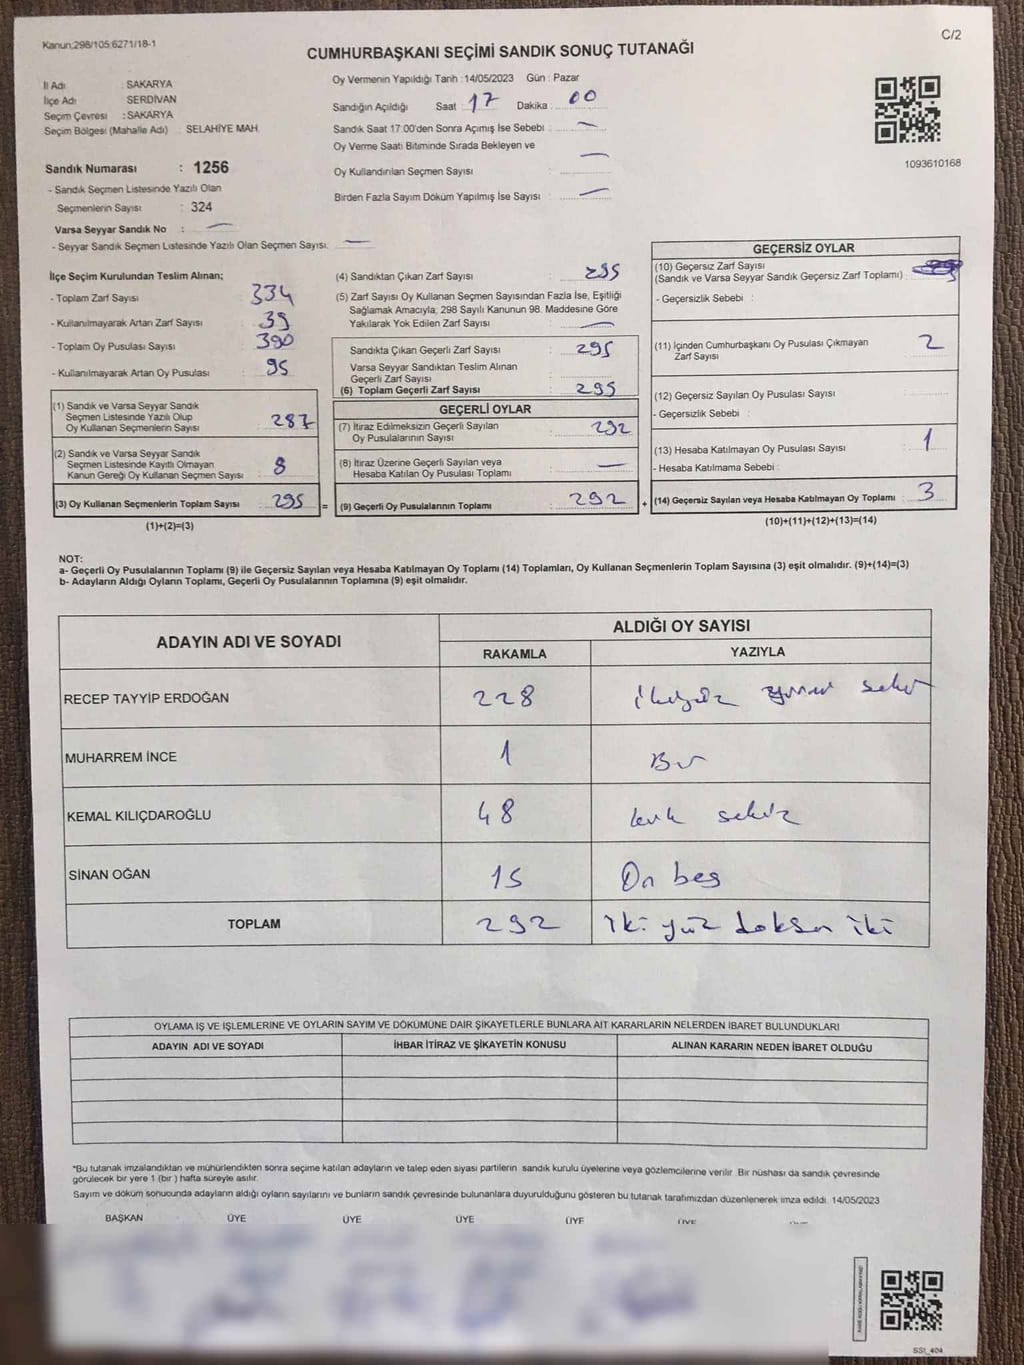 Kanun;298/105;6271/18-1
C/2
CUMHURBAŞKANI SEÇİMİ SANDIK SONUÇ TUTANAĞI
İl Adı : SAKARYA
İlçe Adı SERDİVAN
Seçim Çevresi : SAKARYA
Seçim Bölgesi (Mahalle Adı) : SELAHİYE MAH.
Sandık Numarası : 1256
- Sandık Seçmen Listesinde Yazılı Olan
Seçmenlerin Sayısı : 324
Varsa Seyyar Sandık No : —
- Seyyar Sandık Seçmen Listesinde Yazılı Olan Seçmen Sayısı: —
Oy Vermenin Yapıldığı Tarih :14/05/2023 Gün : Pazar
Sandığın Açıldığı Saat : 17 Dakika : 00
Sandık Saat 17.00'den Sonra Açımış İse Sebebi : —
Oy Verme Saati Bitiminde Sırada Bekleyen ve
Oy Kullandırılan Seçmen Sayısı : —
Birden Fazla Sayım Döküm Yapılmış İse Sayısı : —
1093610168
İlçe Seçim Kurulundan Teslim Alınan;
- Toplam Zarf Sayısı : 334
- Kullanılmayarak Artan Zarf Sayısı : 39
- Toplam Oy Pusulası Sayısı : 390
- Kullanılmayarak Artan Oy Pusulası : 95
(1) Sandık ve Varsa Seyyar Sandık
Seçmen Listesinde Yazılı Olup
Oy Kullanan Seçmenlerin Sayısı : 287
(2) Sandık ve Varsa Seyyar Sandık
Seçmen Listesinde Kayıtlı Olmayan
Kanun Gereği Oy Kullanan Seçmen Sayısı : 8
(3) Oy Kullanan Seçmenlerin Toplam Sayısı : 295 =
(1)+(2)=(3)
(4) Sandıktan Çıkan Zarf Sayısı : 295
(5) Zarf Sayısı Oy Kullanan Seçmen Sayısından Fazla İse, Eşitliği
Sağlamak Amacıyla, 298 Sayılı Kanunun 98. Maddesine Göre
Yakılarak Yok Edilen Zarf Sayısı : —
Sandıkta Çıkan Geçerli Zarf Sayısı : 295
Varsa Seyyar Sandıktan Teslim Alınan
Geçerli Zarf Sayısı :
(6) Toplam Geçerli Zarf Sayısı : 295
GEÇERLİ OYLAR
(7) İtiraz Edilmeksizin Geçerli Sayılan
Oy Pusulalarının Sayısı : 292
(8) İtiraz Üzerine Geçerli Sayılan veya
Hesaba Katılan Oy Pusulası Toplamı : —
(9) Geçerli Oy Pusulalarının Toplamı : 292 +
GEÇERSİZ OYLAR
(10) Geçersiz Zarf Sayısı
(Sandık ve Varsa Seyyar Sandık Geçersiz Zarf Toplamı) :
- Geçersizlik Sebebi :
(11) İçinden Cumhurbaşkanı Oy Pusulası Çıkmayan
Zarf Sayısı : 2
(12) Geçersiz Sayılan Oy Pusulası Sayısı :
- Geçersizlik Sebebi :
(13) Hesaba Katılmayan Oy Pusulası Sayısı : 1
- Hesaba Katılmama Sebebi :
(14) Geçersiz Sayılan veya Hesaba Katılmayan Oy Toplamı : 3
(10)+(11)+(12)+(13)=(14)
NOT:
a- Geçerli Oy Pusulalarının Toplamı (9) ile Geçersiz Sayılan veya Hesaba Katılmayan Oy Toplamı (14) Toplamları, Oy Kullanan Seçmenlerin Toplam Sayısına (3) eşit olmalıdır. (9)+(14)=(3)
b- Adayların Aldığı Oyların Toplamı, Geçerli Oy Pusulalarının Toplamına (9) eşit olmalıdır.
ADAYIN ADI VE SOYADI ALDIĞI OY SAYISI
RAKAMLA YAZIYLA
RECEP TAYYİP ERDOĞAN 228 ikiyüz yirmi sekiz
MUHARREM İNCE 1 Bir
KEMAL KILIÇDAROĞLU 48 kırk sekiz
SİNAN OĞAN 15 On beş
TOPLAM 292 iki yüz doksan iki
OYLAMA İŞ VE İŞLEMLERİNE VE OYLARIN SAYIM VE DÖKÜMÜNE DAİR ŞİKAYETLERLE BUNLARA AİT KARARLARIN NELERDEN İBARET BULUNDUKLARI
ADAYIN ADI VE SOYADI İHBAR İTİRAZ VE ŞİKAYETİN KONUSU ALINAN KARARIN NEDEN İBARET OLDUĞU
*Bu tutanak imzalandıktan ve mühürlendikten sonra seçime katılan adayların ve talep eden siyasi partilerin sandık kurulu üyelerine veya gözlemcilerine verilir. Bir nüshası da sandık çevresinde
görülecek bir yere 1 (bir) hafta süreyle asılır.
Sayım ve döküm sonucunda adayların aldığı oyların sayılarını ve bunların sandık çevresinde bulunanlara duyurulduğunu gösteren bu tutanak tarafımızdan düzenlenerek imza edildi. 14/05/2023
BAŞKAN ÜYE ÜYE ÜYE ÜYE ÜYE
SSI_404